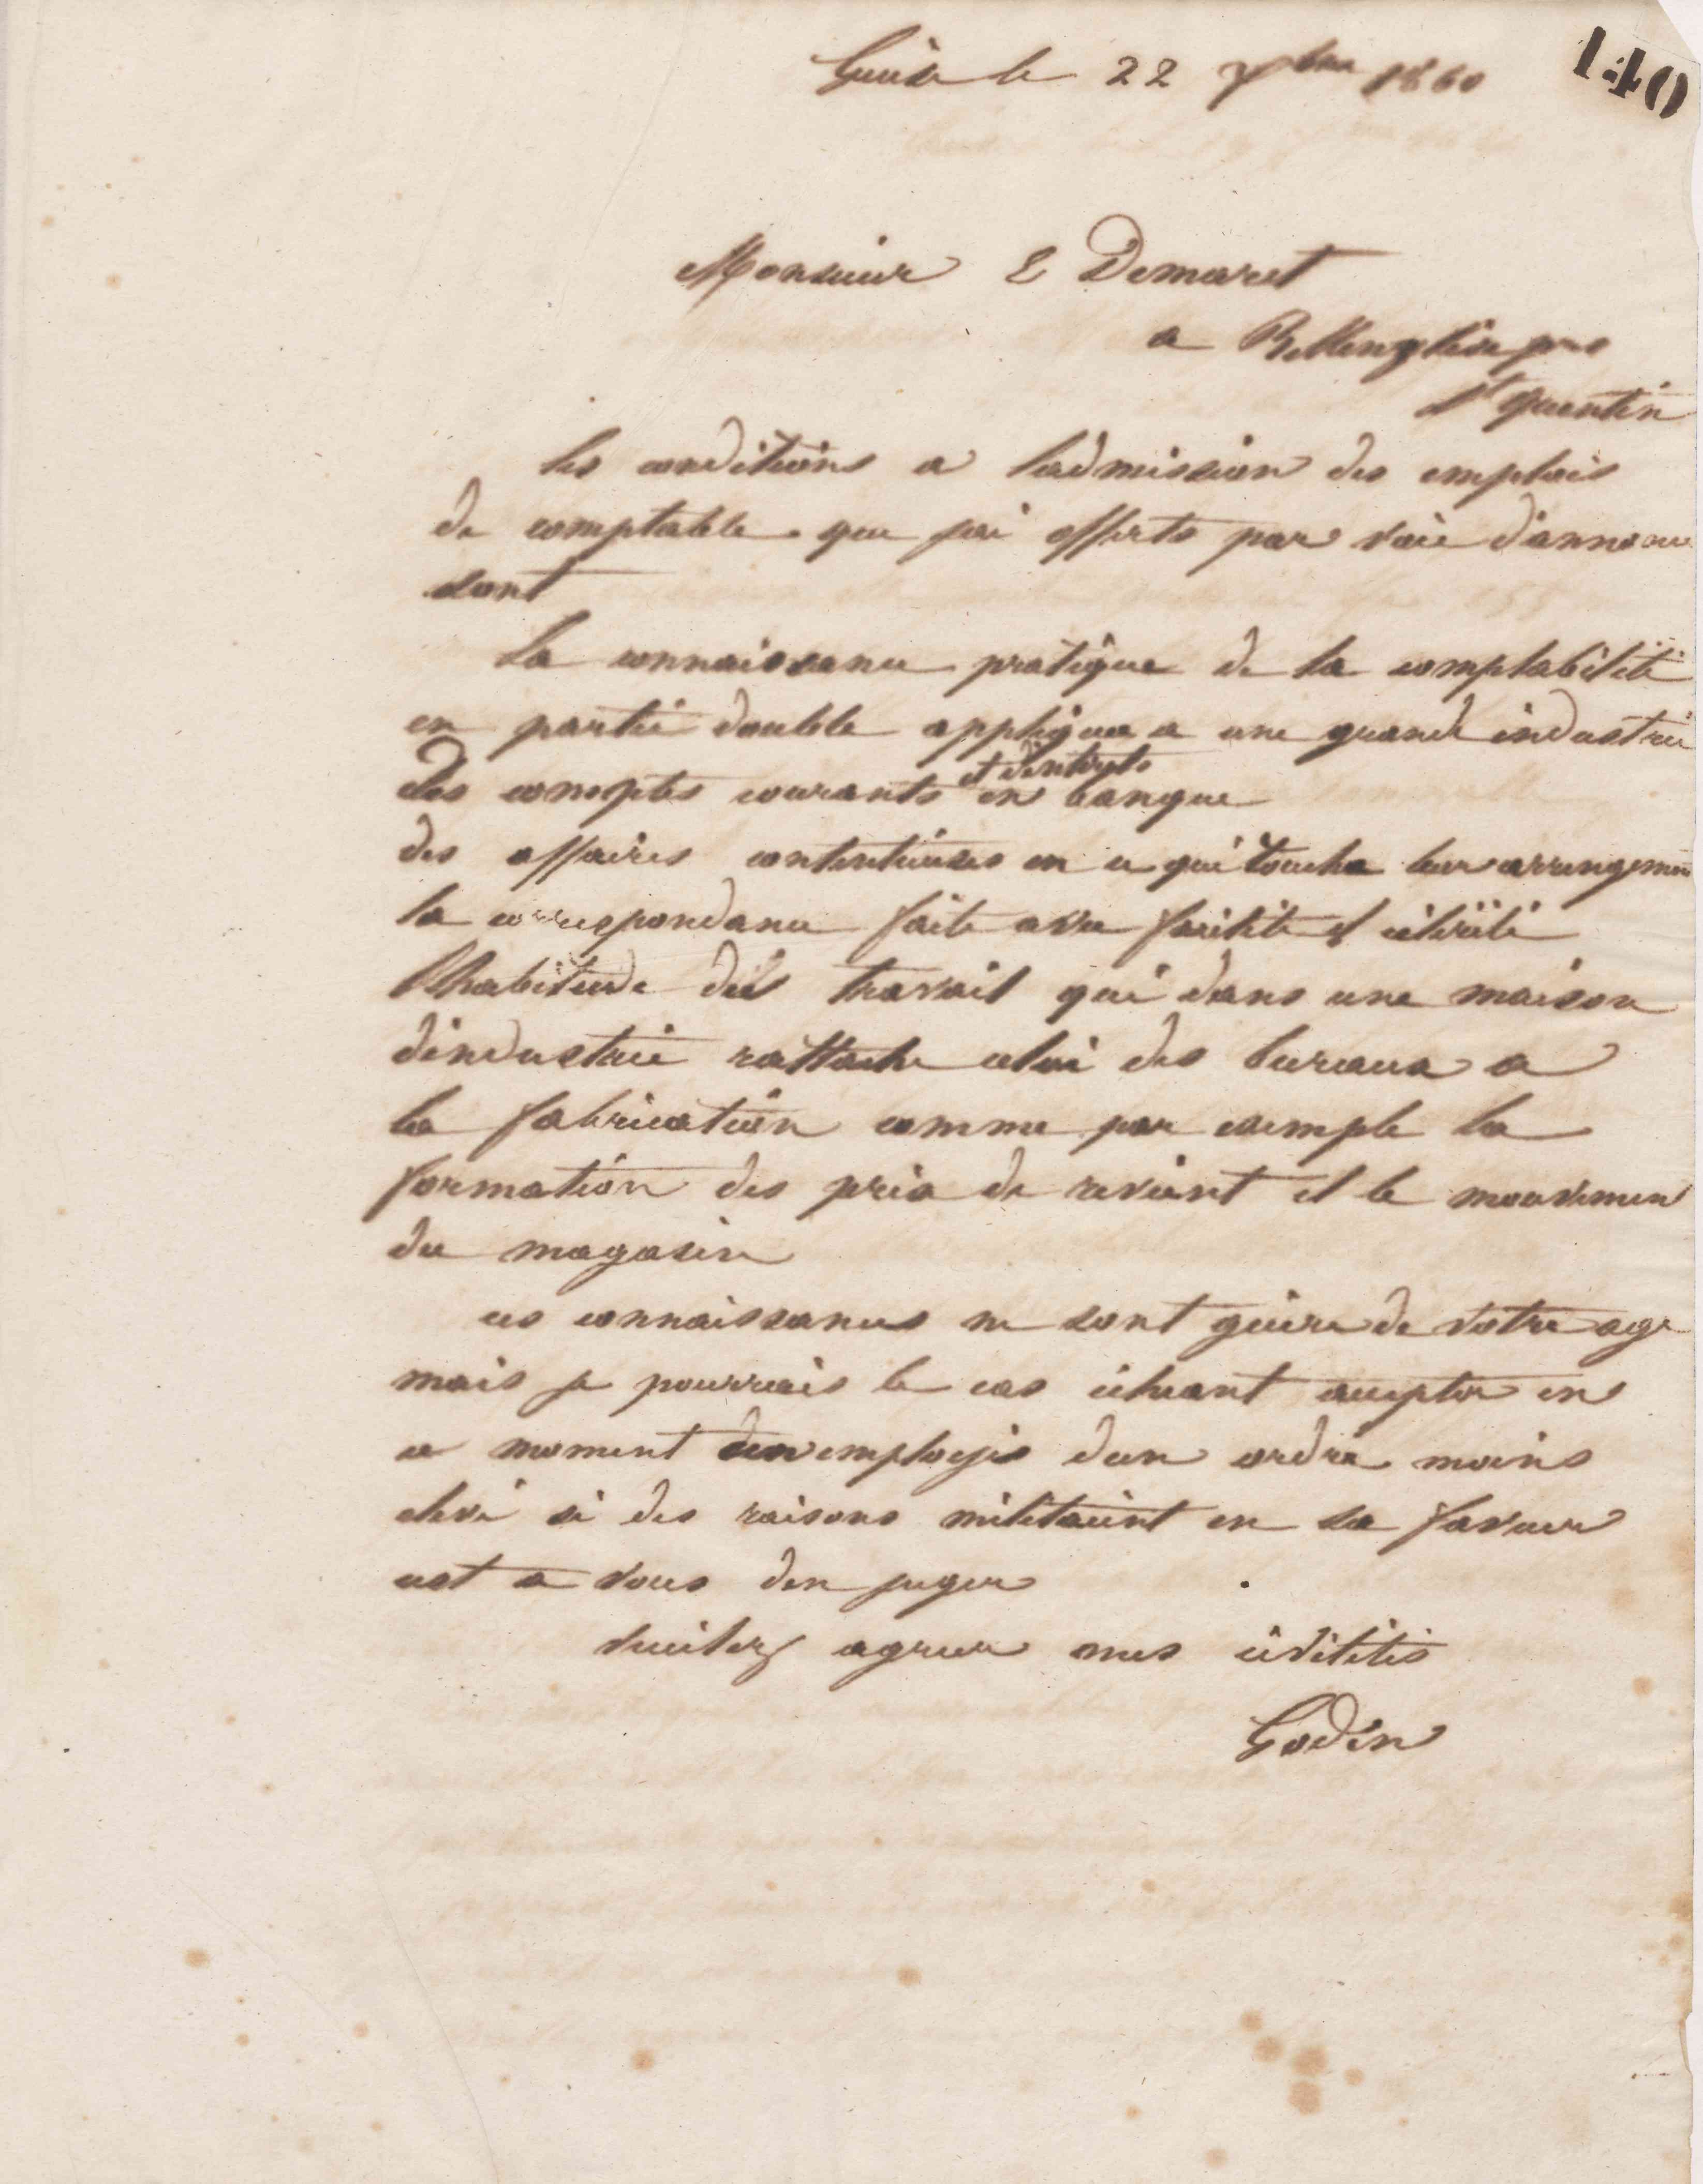 140
Guise le 22 7bre 1860
Monsieur E Demaret
a Bellenglise pres
St Quentin
les conditions a ladmission des emplois
de comptable que jai offerts par voie dannonce
sont
La connaissance pratique de la comptabilité
en partie double applique a une grande industrie
Des comptes courants et dintérets en banque
des affaires contentieuses en ce qui touche leur arrangemen
la correspondance faite avec facilité et célérité
lhabitude du travail qui dans une maison
dindustrie rattache celui des bureaux a
la fabrication comme par exemple la
formation des prix de revient et le mouvemen
du magasin
ces connaissances ne sont guère de votre age
mais je pourrais le cas échéant accepter en
ce moment un employé dun ordre moins
élevé si des raisons militaient en sa faveur
cest a vous den juger
veuillez agreer mes civilités
Godin